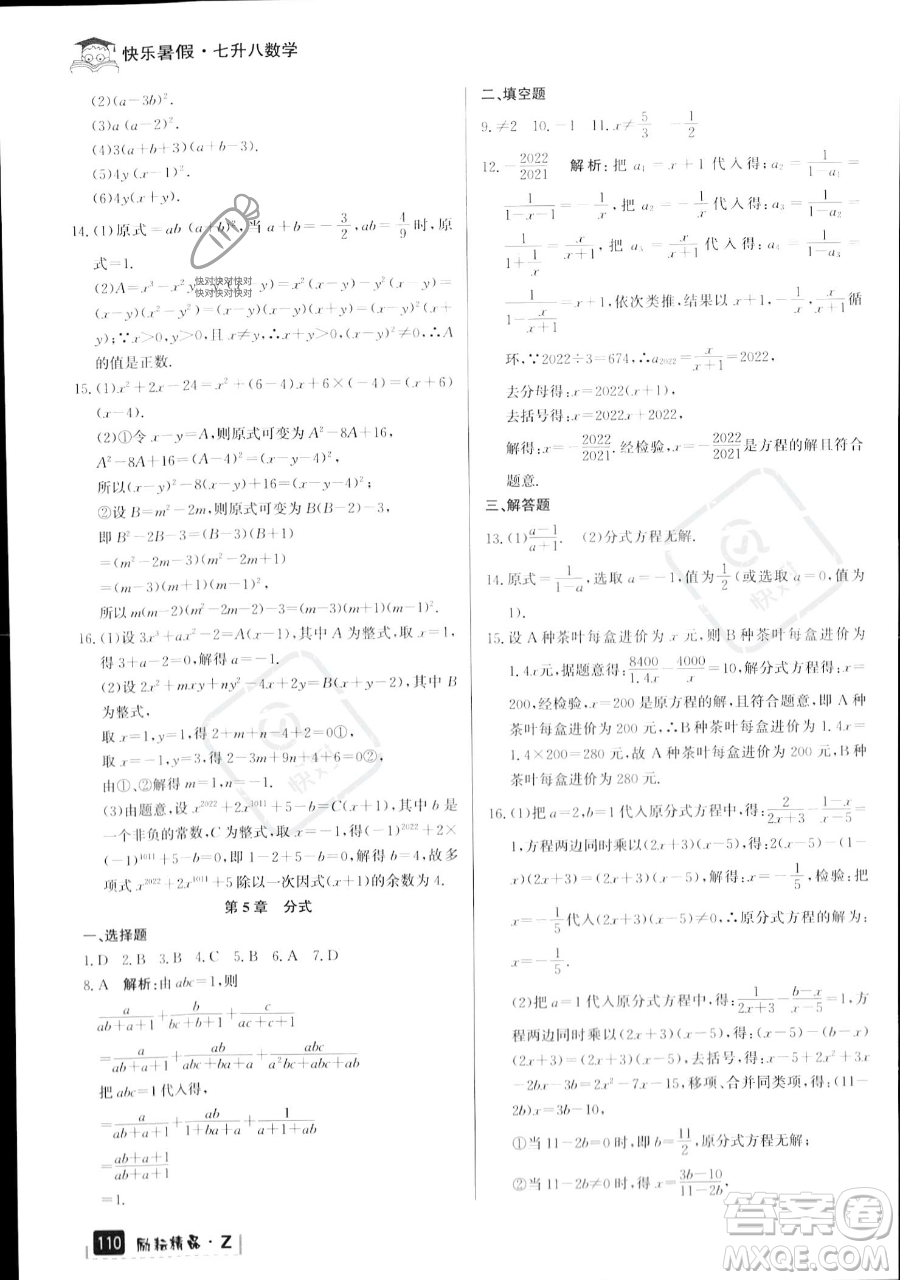 快乐暑假·七升八数学
(2)(a-3b)².
(3)a(a-2)².
(4)3(a+b+3)(a+b).
(5)4y(x-1)².
(6)4y(x+y).
14.(1)原式=ab(a+b)²,当a+b=-3/2,ab=4/9时,原
式=1.
(x-y)(x²-y²)=(x-y)(x-y)(x+y)=(x-y)²
(x+y);∵x>0,y>0,且x≠y,∴x+y>0,(x-y)²≠0,∴A
的值是正数.
15.(1)x²+2x-24=x²+(6-4)x+6×(-4)=(x+6)
(x-4).
(2)①令x-y=A,则原式可变为A²-8A+16,
A²-8A+16=(A-4)²,
所以(x-y)²-8(x-y)+16=(x-y-4)²;
②设B=m²-2m,则原式可变为B(B-2)-3,
即B²-2B-3=(B-3)(B+1)
=(m²-2m-3)(m²-2m+1)
=(m-3)(m+1)(m-1)²,
所以m(m-2)(m²-2m-2)-3=(m-3)(m+1)(m-1)².
16.(1)设3x³+ax²-2=(x-1)A,其中A为整式,取x=1,
得3+a-2=0,解得a=-1.
(2)设2x³+mxy+ny²-4x+2y=B(x+y)(x+2y)(B
为整式),
取x=1,y=-1得n-m=4①,
取x=-1,
由①、②解得m=1,n=5.
(3)由题意,设x²⁰²²+2x¹⁰¹¹+5-b=(x+1)C,其中b是
一个非负的常数,C为整式,取x=-1,得(-1)²⁰²²+2×
(-1)¹⁰¹¹+5-b=0,即1-2+5-b=0,解得b=4,故多
项式x²⁰²²+2x¹⁰¹¹+5除以一次因式(x+1)的余数为4.
第5章 分式
一、选择题
1.D 2.B 3.B 4.C 5.B 6.A 7.D
8.A 解析:由abc=1,则
a/(ab+a+1)+b/(bc+b+1)+c/(ac+c+1)
=a/(ab+a+1)+ab/(abc+ab+a)+
把abc=1代入得:
a/(ab+a+1)+ab/(1+ba+a)+1/(a+1+ab)
=(ab+a+1)/(ab+a+1)
=1.
110 励耘精品·Z
二、填空题
9.≠2 10.-1 11.x≠5/3 -1/2
12.-2022/2021 解析:把a₁=x+1代入得:a₂=1/(1-a₁)=
1/(1-x-1)=-1/x,把a₂=-1/x代入得:a₃=1/(1-a₂)=
1/(1+1/x)=x/(x+1),把a₃=x/(x+1)代入得:a₄=1/(1-a₃)=
1/(1-x/(x+1))=x+1,依次类推,结果以x+1,-1/x,x/(x+1)循
环,∵2022÷3=674,∴a₂₀₂₂=x/(x+1)=2022,
去分母得:x=2022(x+1),
去括号得:x=2022x+2022,
解得:x=-2022/2021.经检验,x=-2022/2021是方程的解且符合
题意.
三、解答题
13.(1)(a-1)/(a+1). (2)分式方程无解.
14.原式=1/(1-a),选取a=-1,值为1/2(或选取a=0,值为
1).
15.设A种茶叶每盒进价为x元,则B种茶叶每盒进价为
1.4x元,据题意得:8400/1.4x-4000/x=10,解分式方程得:x=
200,经检验,x=200是原方程的解,且符合题意,即A种
茶叶每盒进价为200元,∴B种茶叶每盒进价为1.4x=
1.4×200=280元,故A种茶叶每盒进价为200元,B种
茶叶每盒进价为280元.
16.(1)把a=2,b=1代入原分式方程中,得:2/(2x+3)-(1-x)/(x-5)=
1,方程两边同时乘以(2x+3)(x-5),得:2(x-5)-(1-
x)(2x+3)=(2x+3)(x-5),解得:x=-1/5,检验:把x=
-1/5代入(2x+3)(x-5)≠0,∴原分式方程的解为:
x=-1/5.
(2)把a=1代入原分式方程中,得:1/(2x+3)-(b-x)/(x-5)=1,方
程两边同时乘以(2x+3)(x-5),得:(x-5)-(b-x)
(2x+3)=(2x+3)(x-5),去括号,得:x-5+2x²+3x-
2bx-3b=2x²-7x-15,移项、合并同类项,得:(11-
2b)x=3b-10,
①当11-2b=0时,即b=11/2,原分式方程无解;
②当11-2b≠0时,得:x=(3b-10)/(11-2b),